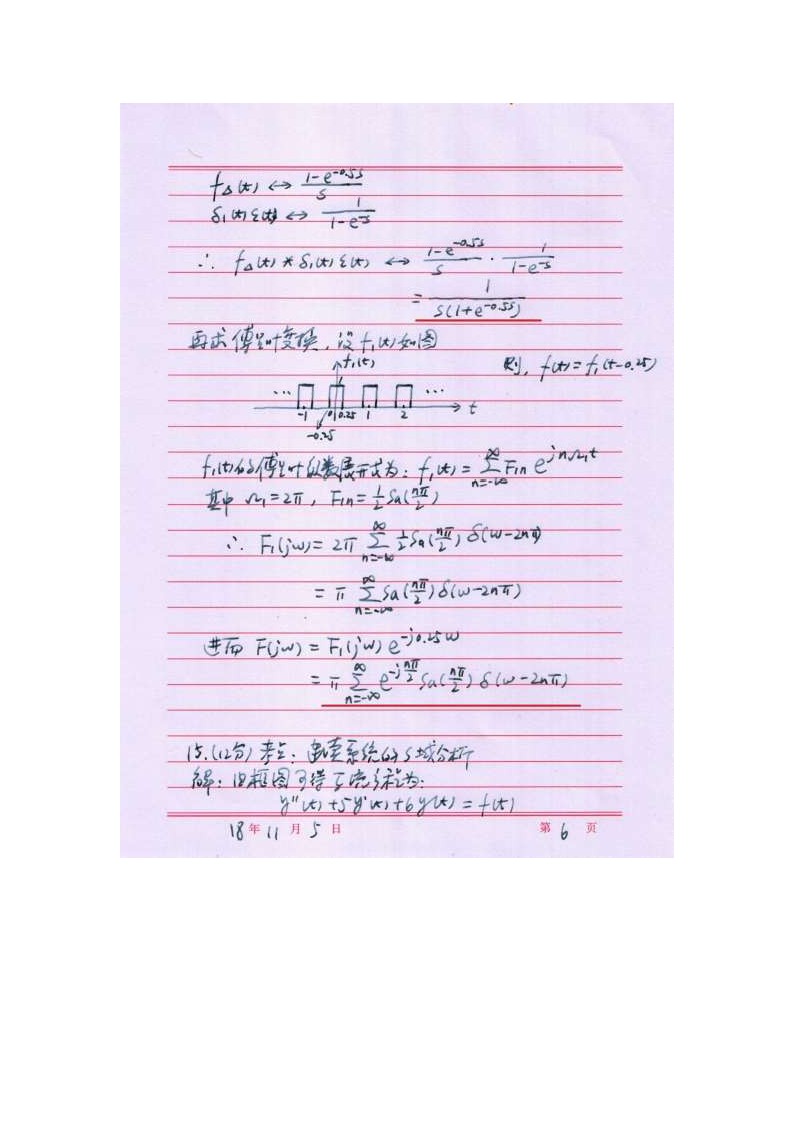 f_Δ(t) ↔ (1-e^{-0.5s})/s
δ₁(t)ε(t) ↔ 1/(1-e^{-s})
∴ f_Δ(t) * δ₁(t)ε(t) ↔ (1-e^{-0.5s})/s · 1/(1-e^{-s})
= 1/(s(1+e^{-0.5s}))
再求傅里叶变换，设 f₁(t) 如图
则，f(t)=f₁(t-0.25)
f₁(t)
... -1 0 0.25 1 2 ... t
-0.25
f₁(t)的傅里叶级数展开式为：f₁(t) = Σ_{n=-∞}^{∞} F₁ₙ e^{jnΩ₁t}
其中 Ω₁=2π，F₁ₙ=½Sa(nπ/2)
∴ F₁(jω) = 2π Σ_{n=-∞}^{∞} ½Sa(nπ/2) δ(ω-2nπ)
= π Σ_{n=-∞}^{∞} Sa(nπ/2) δ(ω-2nπ)
进而 F(jω) = F₁(jω) e^{-j0.25ω}
= π Σ_{n=-∞}^{∞} e^{-jnπ/2} Sa(nπ/2) δ(ω-2nπ)
15.(12分) 考点：连续系统的S域分析
解：由框图可得系统方程为：
y''(t)+5y'(t)+6y(t)=f(t)
18年 11月 5日 第 6 页